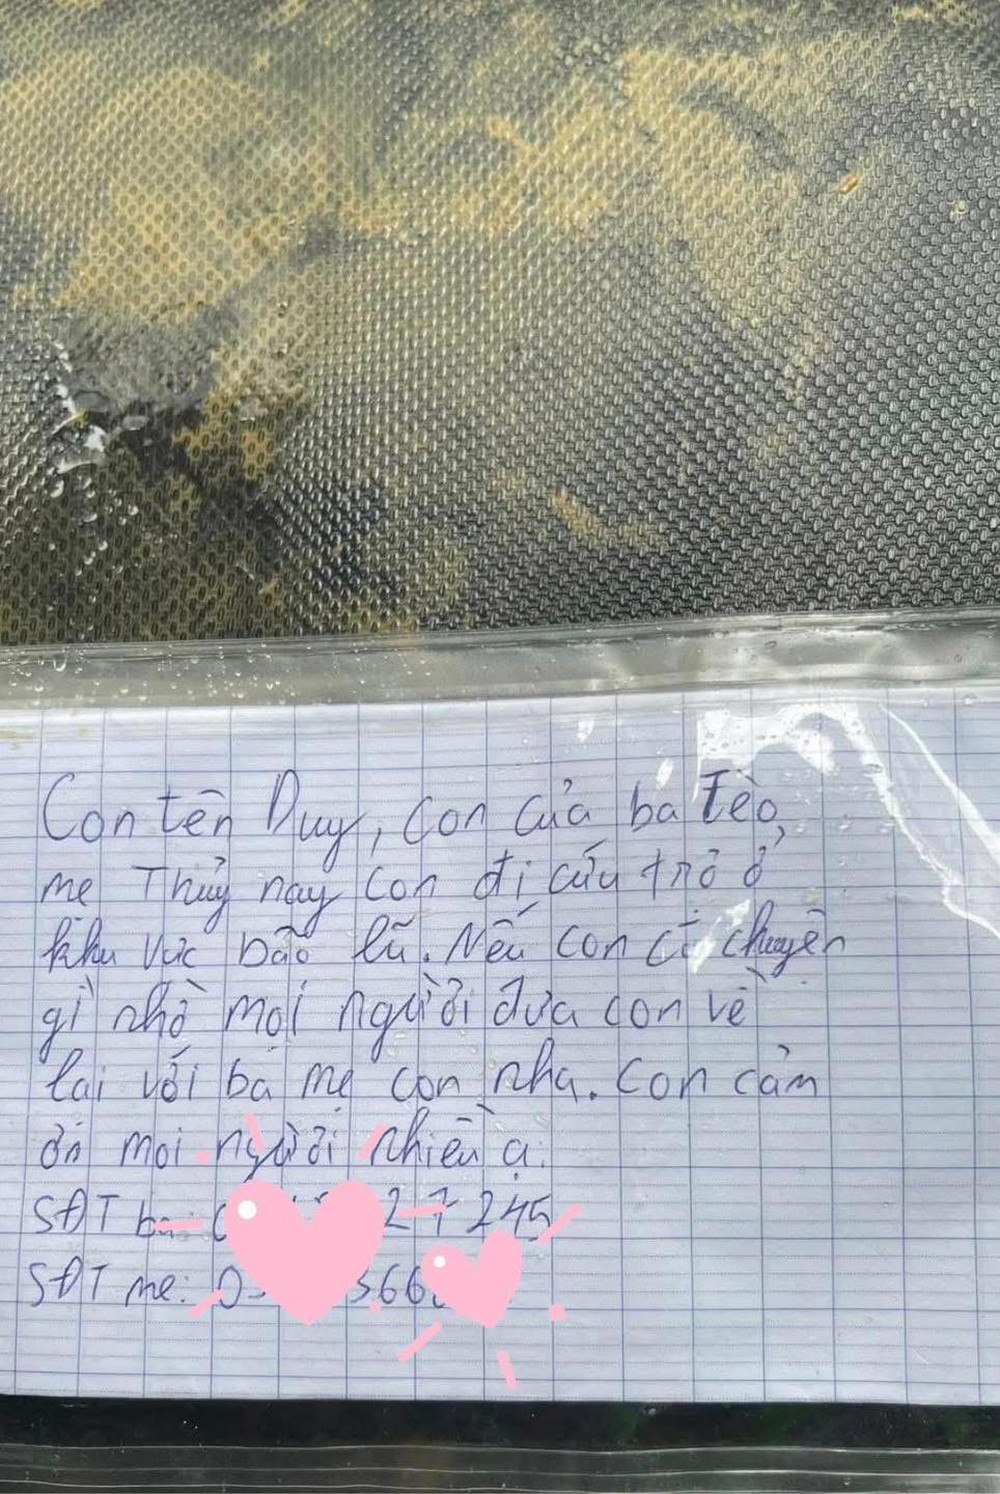 Con tên Duy, con của ba Tèo,
mẹ Thủy nay con đi cứu trở ở
khu vực bão lũ. Nếu con có chuyện
gì nhờ mọi người đưa con về
lại với ba mẹ con nha. Con cảm
ơn mọi người nhiều ạ.
SĐT ba: 27245
SĐT mẹ: 0 366